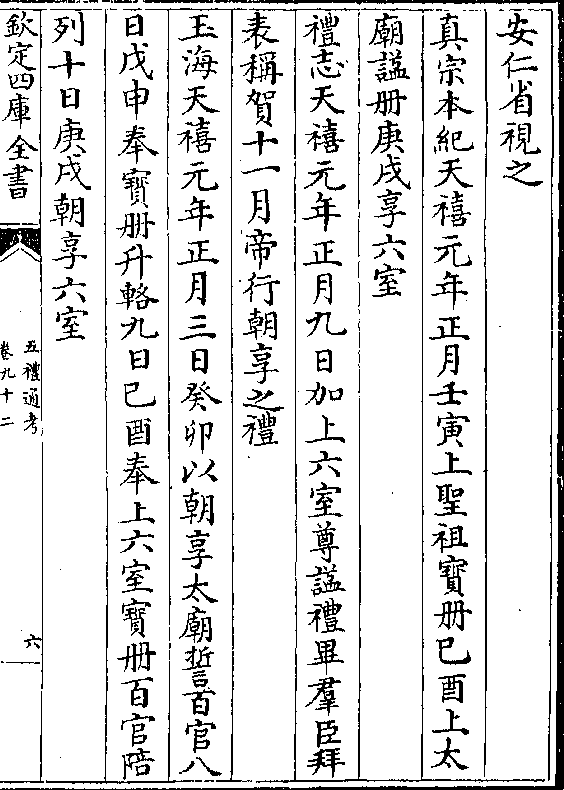 安仁省視之
真宗本紀天禧元年正月壬寅上聖祖寶册己酉上太
廟諡册庚戌享六室
禮志天禧元年正月九日加上六室尊諡禮畢羣臣拜
表稱賀十一月帝行朝享之禮
玉海天禧元年正月三日癸卯以朝享太廟誓百官八
日戊申奉寶册升輅九日己酉奉上六室寶册百官陪
列十日庚戌朝享六室
欽定四庫全書
五禮通考
卷九十二
六